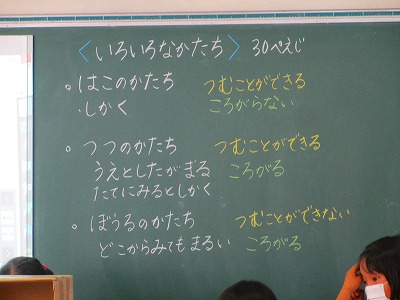 〈いろいろなかたち〉 30ぺえじ
。はこのかたち つむことができる
・しかく ころがらない
。つつのかたち つむことができる
うえとしたがまる ころがる
たてにみるとしかく
。ぼうるのかたち つむことができない
どこからみてもまるい ころがる